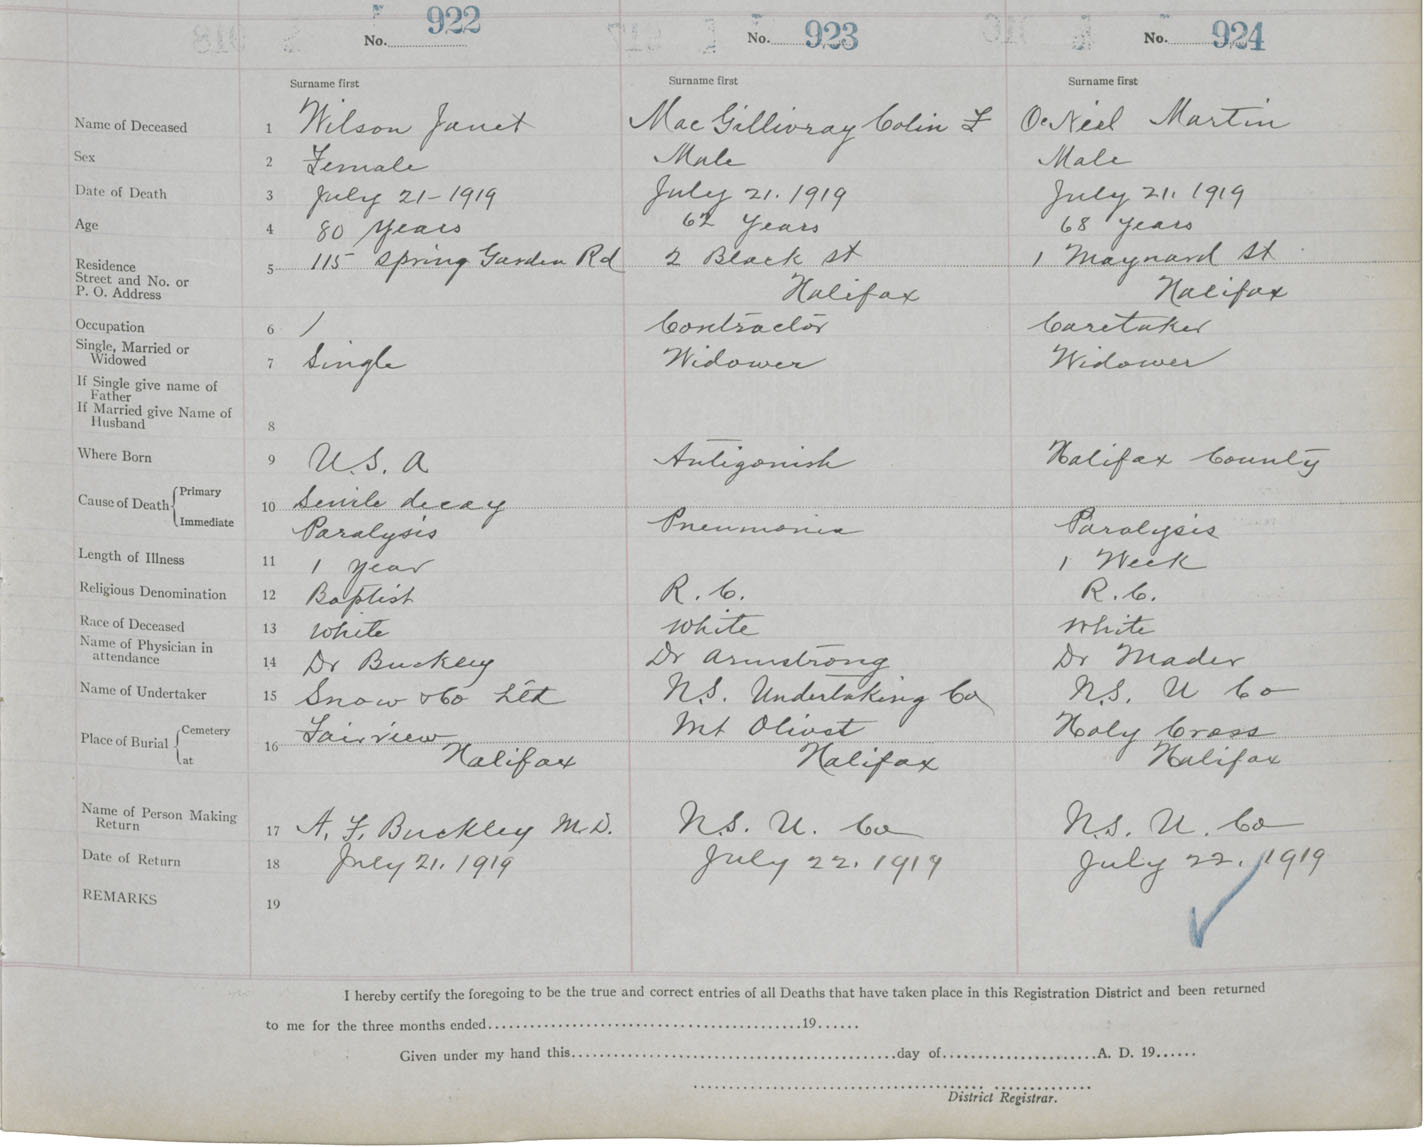 No. 922 No. 923 No. 924
Surname first Surname first Surname first
Name of Deceased 1 Wilson Janet MacGillivray Colin F O'Neil Martin
Sex 2 Female Male Male
Date of Death 3 July 21-1919 July 21. 1919 July 21. 1919
Age 4 80 years 62 Years 68 years
Residence
Street and No. or
P. O. Address
5 115 Spring Garden Rd 2 Black St 1 Maynard St
Halifax Halifax
Occupation 6 / Contractor Caretaker
Single, Married or
Widowed
7 Single Widower Widower
If Single give name of
Father
If Married give Name of
Husband
8
Where Born 9 U.S.A Antigonish Halifax County
Cause of Death Primary
Immediate
10 Senile decay
Paralysis Pneumonia Paralysis
Length of Illness 11 1 Year 1 Week
Religious Denomination 12 Baptist R.C. R.C.
Race of Deceased 13 White White White
Name of Physician in
attendance
14 Dr Buckley Dr Armstrong Dr Mader
Name of Undertaker 15 Snow & Co Ltd N.S. Undertaking Co N.S. U Co
Place of Burial Cemetery
at
16 Fairview Mt Olivet Holy Cross
Halifax Halifax Halifax
Name of Person Making
Return
17 A. F. Buckley M.D. N.S. U. Co N.S. U. Co
Date of Return 18 July 21. 1919 July 22. 1919 July 22. 1919
REMARKS 19
I hereby certify the foregoing to be the true and correct entries of all Deaths that have taken place in this Registration District and been returned
to me for the three months ended..........19......
Given under my hand this..........day of..........A. D. 19......
District Registrar.